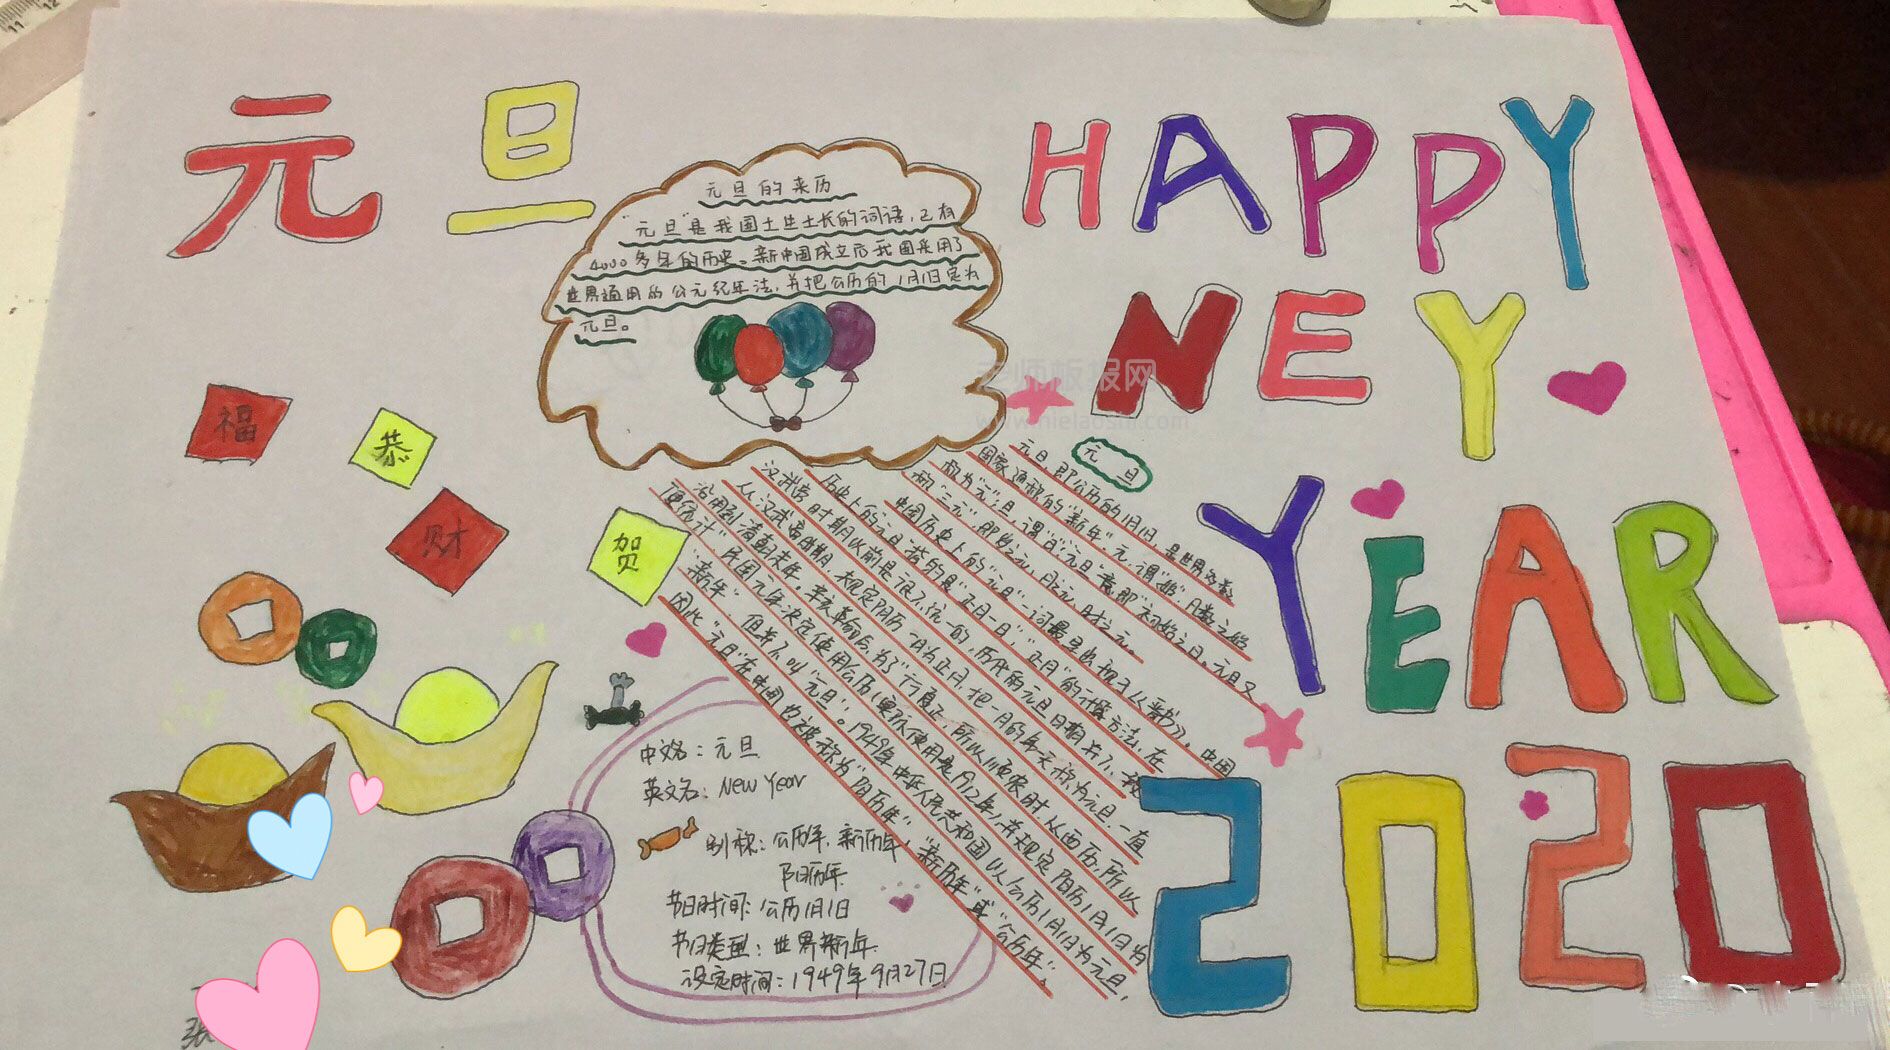 元旦
HAPPY
NEY
YEAR
2020
元旦的来历
"元旦"是我国土生土长的词语,已有
4000多年的历史。新中国成立后我国采用了
世界通用的公元纪年法,并把公历的1月1日定为
元旦。
福
恭
财
贺
元旦
元旦,即公历的1月1日,是世界多数
国家通称的"新年"。元,谓"始",月数之始
称为"元";旦,谓"日";"元旦"意即"初始之日"。元旦又
称"三元",即岁之元,月之元,时之元。
中国历史上的"元旦"一词最早出现于《晋书》。中国
历史上的元旦指的是"正月一日","正月"的计算方法,在
汉武帝时期以前是很不统一的,历代的元旦日期并不
从汉武帝时期,
沿用到清朝末年。辛亥革命后,为了"行夏正,所以顺农时,从西历,所以
便统计",民国元年决定使用公历(实际使用是1912年),并规定阳历1月1日为
"新年",但并不叫"元旦"。1949年中华人民共和国以公历1月1日为元旦,
因此"元旦"在中国也被称为"阳历年","新历年"或"公历年"。
中文名:元旦
英文名:New Year
别称:公历年,新历年,
阳历年
节日时间:公历1月1日
节日类型:世界新年
设定时间:1949年9月27日
张